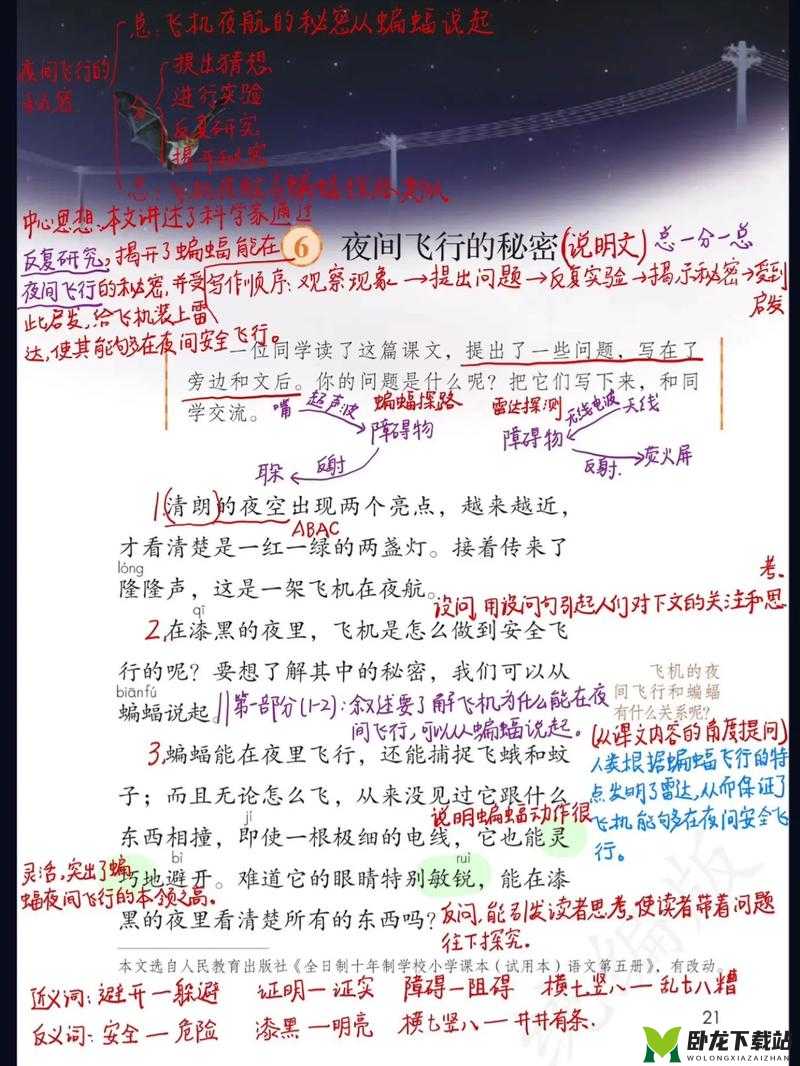 总:飞机夜航的秘密从蝙蝠说起
夜间飞行的
秘密
提出猜想
进行实验
反复研究
揭开秘密
中心思想:本文讲述了科学家通过
反复研究,揭开了蝙蝠能在
夜间飞行的秘密,并受
此启发,给飞机装上雷
达,使其能够在夜间安全飞行。
6 夜间飞行的秘密(说明文) 总一分一总
写作顺序:观察现象→提出问题→反复实验→揭示秘密→受到
启发
一位同学读了这篇课文,提出了一些问题,写在了
旁边和文后。你的问题是什么呢?把它们写下来,和同
学交流。
嘴 超声波 蝙蝠探路 雷达探测 无线电波 天线
障碍物 障碍物
耳朵 反射 反射 荧光屏
1.清朗的夜空出现两个亮点,越来越近,
ABAC
才看清楚是一红一绿的两盏灯。接着传来了
lóng
隆隆声,这是一架飞机在夜航。
设问,用设问句引起人们对下文的关注和思
考。
qī
2.在漆黑的夜里,飞机是怎么做到安全飞
行的呢?要想了解其中的秘密,我们可以从
biānfú
蝙蝠说起。
第一部分(1-2):叙述要了解飞机为什么能在夜
间飞行,可以从蝙蝠说起。
飞机的夜
间飞行和蝙蝠
有什么关系呢?
(从课文内容的角度提问)
人类根据蝙蝠飞行的特
点发明了雷达,从而保证了
飞机能够在夜间安全飞
行。
3.蝙蝠能在夜里飞行,还能捕捉飞蛾和蚊
子;而且无论怎么飞,从来没见过它跟什么
jí
东西相撞,即使一根极细的电线,它也能灵
bì ruì
巧地避开。难道它的眼睛特别敏锐,能在漆
黑的夜里看清楚所有的东西吗?
说明蝙蝠动作很
灵活,突出了蝙
蝠夜间飞行的本领之高。
反问,能引发读者思考,使读者带着问题
往下探究。
本文选自人民教育出版社《全日制十年制学校小学课本(试用本)语文第五册》,有改动。
近义词:避开—躲避 证明—证实 障碍—阻碍 横七竖八—乱七八糟
反义词:安全—危险 漆黑—明亮 横七竖八—井井有条.
21
卧龙下载站
WOLONGXIAZAIZHAN